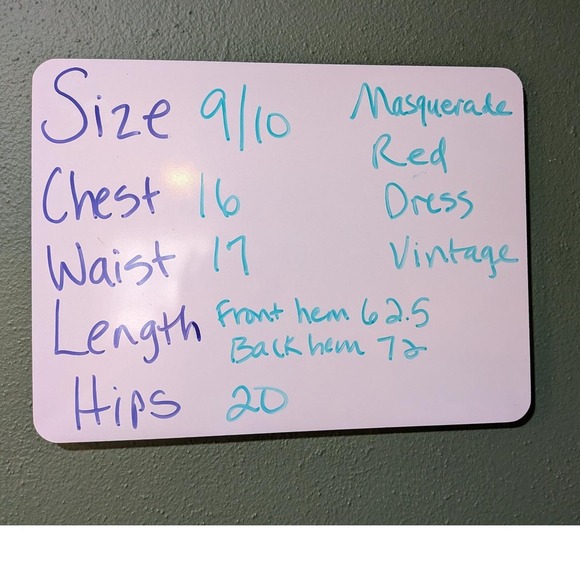 Size 9/10
Chest 16
Waist 17
Length Front hem 62.5
Back hem 72
Hips 20
Masquerade
Red
Dress
Vintage